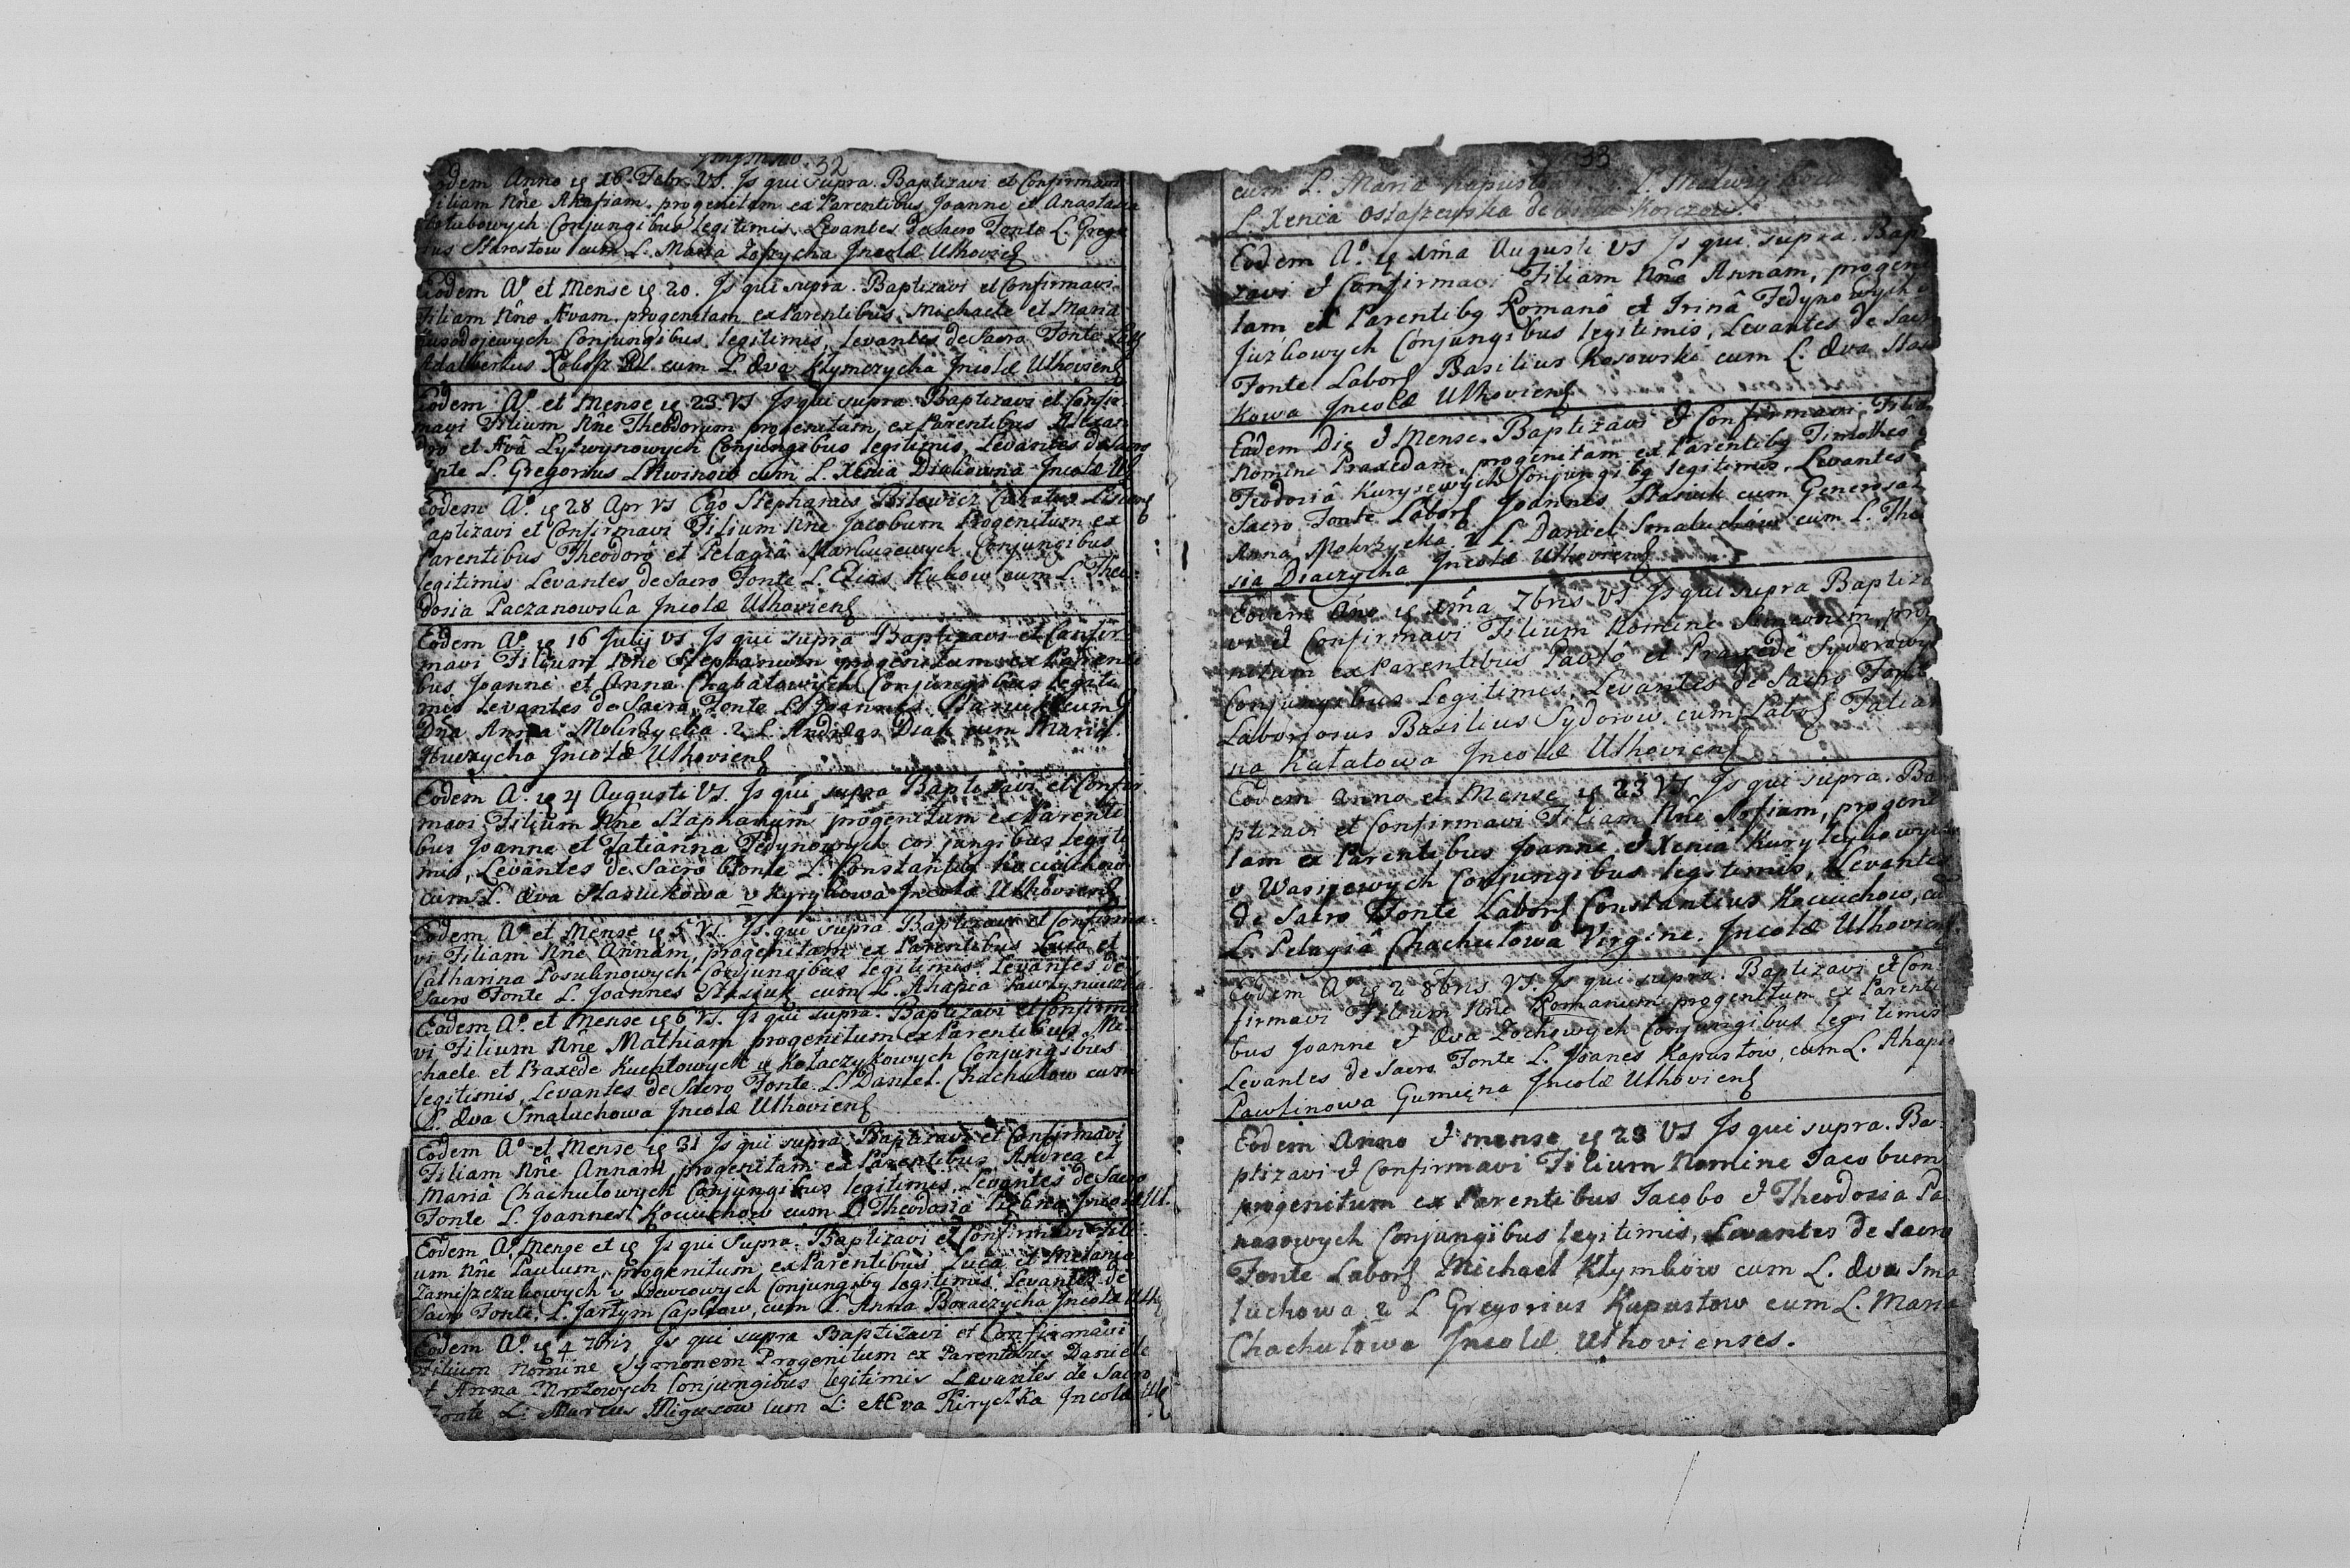 32
Anno 16 Febr. VS. Js qui supra. Baptizavi et Confirmavi
Filiam Nne progenitam ex Parentibus Joanne et Anastasia
Conjungibus legitimis. Levantes de Sacro Fonte L. Grego
Starostow cum L. Maria Incolæ Uthoviens
Eodem Ao et Mense 20. Js qui supra. Baptizavi et Confirmavi
Filiam Nne Avam progenitam ex Parentibus Michaele et Maria
Conjungibus legitimis, Levantes de Sacro Fonte
Adalbertus cum L. Æva Klymczycha Jncolæ Uthoviens
Eodem Ao et Mense 23. VS Js qui supra Baptizavi et Confir
mavi Filium Nne Theodorum progenitum, ex Parentibus
et Avâ Lytwynowych Conjungibus legitimis, Levantes de Sacro
L. Gregorius cum L. Xenia Diakowna Jncolæ
Eodem Ao 28 Apr VS Ego Stephanus Curatus
aptizavi et Confirmavi Filium Nne Jacobum Progenitum ex
Parentibus Theodorô et Pelagiâ Conjungibus
legitimis Levantes de Sacro Fonte L. Elias Kukow cum L. Theo
dosia Paczanowska Jncolæ Uthoviens
Eodem Ao 16 Julij VS Js qui supra Baptizavi et Confir
mavi Filium Nne Stephanum progenitum ex Parenti
bus Joanne et Anna Chabalowych Conjungibus legiti
mis Levantes de Sacro Fonte L. Joannes Stasiuk cum G
Dna Anna Mokrzycka. 2 L. Andreas Diak cum Maria
Jncolæ Uthoviens
Eodem Ao 4 Augusti VS. Js qui supra Baptizavi et Confir
mavi Filium Nne Staphanum progenitum ex Parenti
bus Joanne et Tatianna Fedynowych conjungibus legiti
mis, Levantes de Sacro Fonte L. Constantig Kociuchow
cum L. Æva Stasiukowa v Kyrykowa Jncolæ Uthoviens
Eodem Ao et Mense 5 VS. Js qui supra Baptizavi et Confirma
vi Filiam Nne Annam, progenitam ex Parentibus Luca et
Catharina Posulinowych Conjungibus legitimis. Levantes de
Sacro Fonte L. Joannes Stasiuk cum L. Ahapia
Eodem Ao et Mense 6 VS. Js qui supra. Baptizavi et Confirma
vi Filium Nne Mathiam progenitum ex Parentibus Mi
chaele et Praxede Kuchtowych v Kolaczykowych Conjungibus
legitimis, Levantes de Sacro Fonte L. Daniel Chachulow cum
L. Æva Smaluchowa Jncolæ Uthoviens
Eodem Ao et Mense 31 Js qui supra Baptizavi et Confirmavi
Filiam Nne Annam progenitam ex Parentibus Andrea et
Mariâ Chachulowych Conjungibus legitimis Levantes de Sacro
Fonte L. Joannes Kociuchow cum L. Theodosia
Eodem Ao Mense et Js qui Supra Baptizavi et Confirmavi Fili
um Nne Paulum, progenitum ex Parentibus Luca et Melania
Conjungibg legitimis. Levantes de
Sacro Fonte, L. Jartym Capliow, cum L. Anna Boraczycha Jncolæ Uth
Eodem Ao 4 7bris Js qui supra Baptizavi et Confirmavi
Filium Nomine Symonem Progenitum ex Parentibus Daniele
et Anna Mrozowych Conjungibus legitimis Levantes de Sacro
Fonte L. Marcus Migusow cum L. Æva Kiryczka Jncolæ Uth
33
cum L. Maria L.
L. Xenia Ostaszewska de Villa Korczow
Eodem Ao 1ma Augusti VS Js qui supra. Bap
zavi et Confirmavi Filiam Nne Annam, progeni
tam ex Parentibg Romanô et Irinâ Fedynowych
Juzkowych Conjungibus legitimis, Levantes de Sacro
Fonte Labors Basilius Kosowski cum L. Æva Stasiu
kowa Jncolæ Uthoviens
Eadem Die et Mense. Baptizavi et Confirmavi Filiam
Nomine Praxedam, progenitam ex Parentibg Timotheo
Teodosiâ Kurysewych Conjungibg legitimis, Levantes
Sacro Fonte Labors Joannes Stasiuk cum Generosa
Anna Mokrzycka 2 L. Daniel Smaluchow cum L. Theo
sia Diaczycha Jncolæ Uthoviens
Eodem Ano 1ma 7bris VS Js qui supra Baptiza
vi et Confirmavi Filium Nomine Simeonem, proge
nitum ex Parentibus Pavlô et Praxede Sydorowych
Conjungibus Legitimis, Levantes de Sacro Fonte
Laboriosus Basilius Sydorow cum Labors Tatian
na Katalowa Jncolæ Uthoviens
Eodem anno et Mense 23 VS Js qui supra. Ba
ptizavi et Confirmavi Filiam Nne Sofiam, progeni
tam ex Parentibus Joanne et Xeniâ Kurylenkowych
v Wasizewych Conjungibus legitimis, Levantes
de Sacro Fonte Labors Constantius Kociuchow, cu
L. Pelagiâ Chachulowa Virgine. Jncolæ Uthoviens
Eodem Ao 2 8bris VS. Js qui supra. Baptizavi et Con
firmavi Filium Nne Romanum progenitum ex Parenti
bus Joanne et Æva Zochowych Conjungibus legitimis
Levantes de Sacro Fonte L. Joanes Kapustow, cum L. Ahapia
Pawlinowa Gumięna Jncolæ Uthoviens
Eodem Anno et mense 23 VS Js qui supra. Ba
ptizavi et Confirmavi Filium Nomine Jacobum
progenitum ex Parentibus Jacobo et Theodosia Pa
nasowych Conjungibus legitimis, Levantes de Sacro
Fonte Labors Michael Klymkow cum L. Æva Sma
luchowa 2 L Gregorius Kapustow cum L. Maria
Chachulowa Jncolæ Uthovienses.